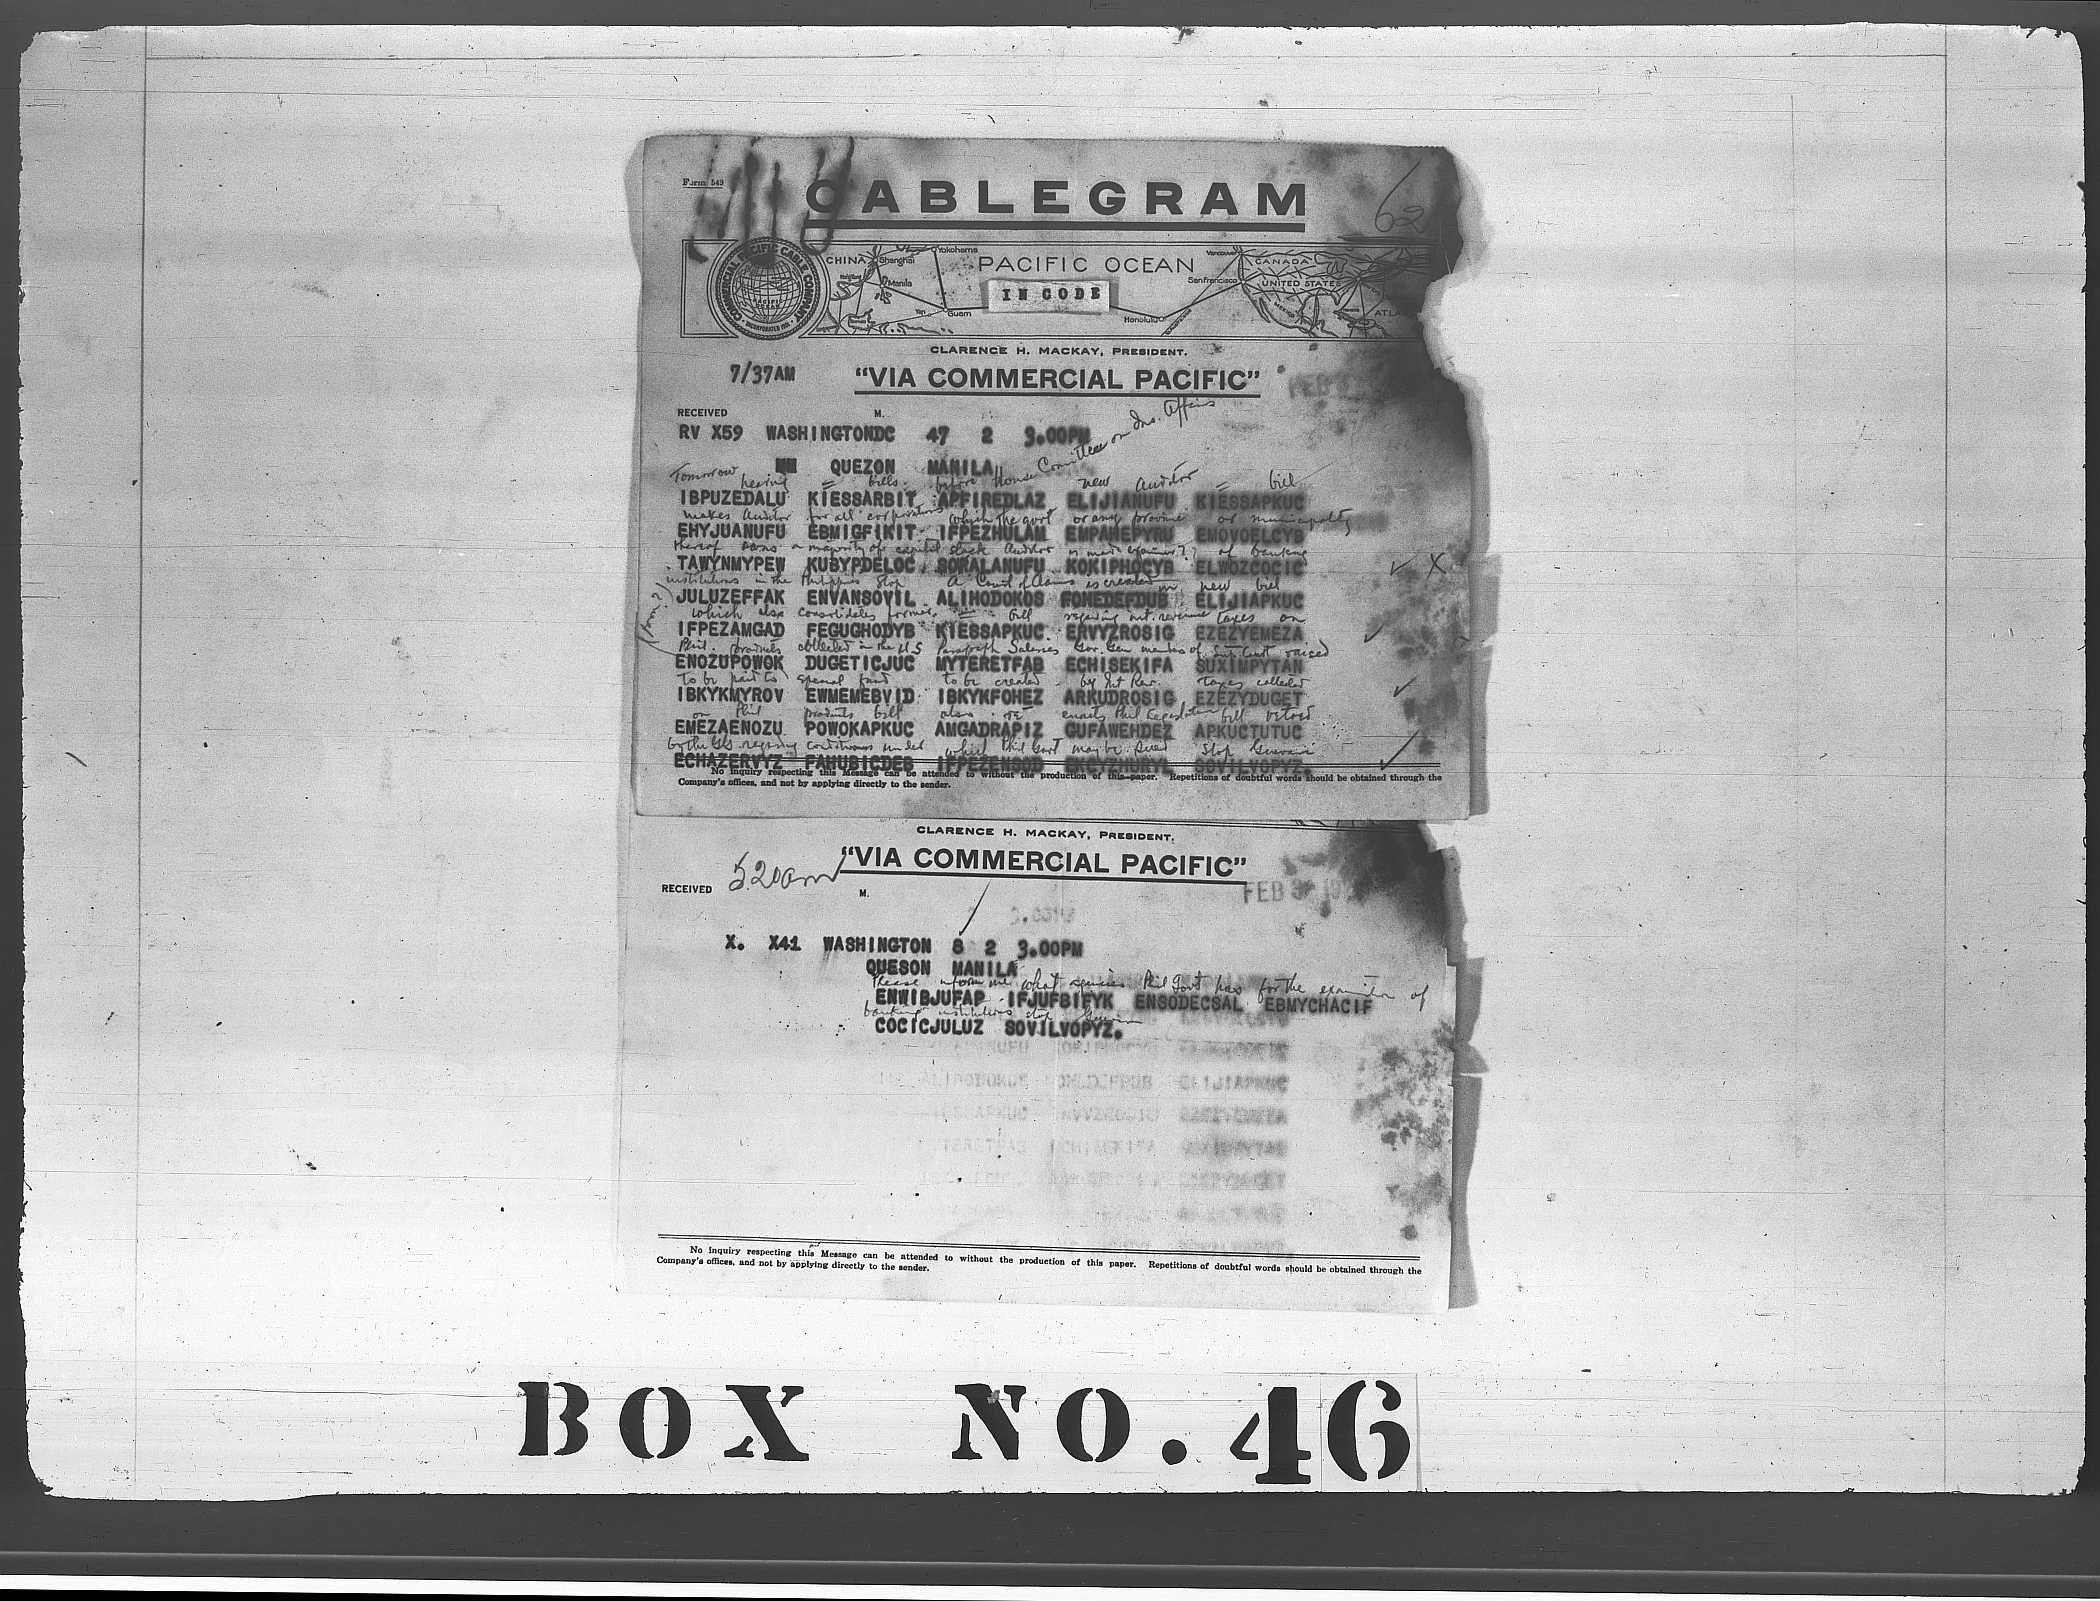 Form 549
CABLEGRAM
62
COMMERCIAL PACIFIC CABLE COMPANY
INCORPORATED
CHINA
Shanghai
Yokohama
Manila
Guam
PACIFIC OCEAN
IN CODE
Honolulu
San Francisco
Vancouver
CANADA
UNITED STATES
MEXICO
ATLA
CLARENCE H. MACKAY, PRESIDENT.
7/37AM
"VIA COMMERCIAL PACIFIC"
FEB
RECEIVED M.
RV X59 WASHINGTONDC 47 2 3.00PM
QUEZON MANILA
Tomorrow hearing = bills before House Committee on Ins. Affairs new Auditor = bill
IBPUZEDALU KIESSARBIT APFIREDLAZ ELIJIANUFU KIESSAPKUC
makes Auditor for all corporations which the govt or any province or municipality
EHYJUANUFU EBMIGFIKIT IFPEZHULAM EMPAHEPYRU EMOVOELCYB
thereof owns a majority of capital stock Auditor is made examiner?? of banking
TAWYNMYPEW KUBYPDELOC SOKALANUFU KOKIPHOCYB ELWOZCOCIC X
institutions in the Philippines Stop A Court of Claims is created in new bill
JULUZEFFAK ENVANSOVIL ALIHODOKOS FOHEDEFDUB ELIJIAPKUC
which also consolidates former = bill regarding int. revenue taxes on
IFPEZAMGAD FEGUGHODYB KIESSAPKUC ERVYZROSIG EZEZYEMEZA
Phil. products collected in the US Paragraph Salaries Gov. Gen members of Sup. Court raised
ENOZUPOWOK DUGETICJUC MYTERETFAB ECHISEKIFA SUXIMPYTAN
to be paid to special fund to be created by Int Rev. taxes collected
IBKYKMYROV EWMEMEBVID IBKYKFOHEZ ARKUDROSIG EZEZYDUGET
on Phil products bill also re enacts Phil Legislation bill vetoed
EMEZAENOZU POWOKAPKUC AMGADRAPIZ GUFAWEHDEZ APKUCTUTUC
by the GG. regarding conditions under which Phil Govt may be sued Stop Guevara
ECHAZERVYZ FAHUBICDEB IFPEZENSOD EKCYZHURYL SOVILVOPYZ.
No inquiry respecting this Message can be attended to without the production of this paper. Repetitions of doubtful words should be obtained through the
Company's offices, and not by applying directly to the sender.
CLARENCE H. MACKAY, PRESIDENT.
"VIA COMMERCIAL PACIFIC"
RECEIVED 5.20am M.
FEB 3
X. X41 WASHINGTON 8 2 3.00PM
QUESON MANILA
Please inform me what agencies Phil Govt has for the examination of
ENWIBJUFAP IFJUFBIFYK ENSODECSAL EBMYCHACIF
banking institutions stop Guevara
COCICJULUZ SOVILVOPYZ.
No inquiry respecting this Message can be attended to without the production of this paper. Repetitions of doubtful words should be obtained through the
Company's offices, and not by applying directly to the sender.
BOX NO. 46